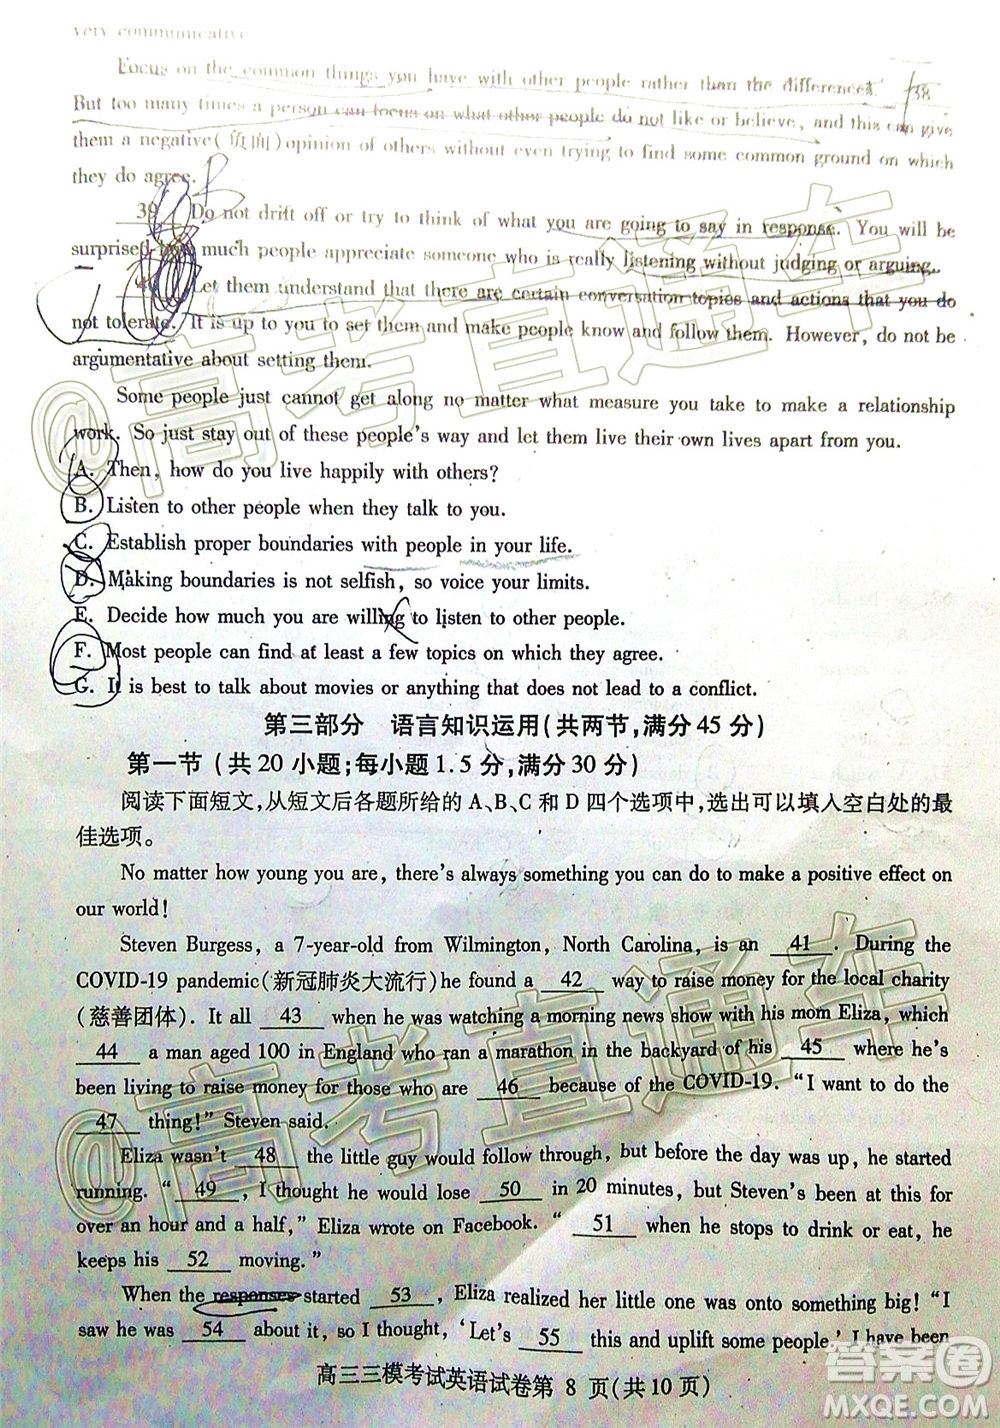 very communicative
Focus on the common things you have with other people rather than the differences. 38
But too many times a person can focus on what other people do not like or believe, and this can give
them a negative(负面)opinion of others without even trying to find some common ground on which
they do agree.
39 Do not drift off or try to think of what you are going to say in response. You will be
surprised how much people appreciate someone who is really listening without judging or arguing.
40 Let them understand that there are certain conversation topics and actions that you do
not tolerate. It is up to you to set them and make people know and follow them. However, do not be
argumentative about setting them.
Some people just cannot get along no matter what measure you take to make a relationship
work. So just stay out of these people's way and let them live their own lives apart from you.
A. Then, how do you live happily with others?
B. Listen to other people when they talk to you.
C. Establish proper boundaries with people in your life.
D. Making boundaries is not selfish, so voice your limits.
E. Decide how much you are willing to listen to other people.
F. Most people can find at least a few topics on which they agree.
G. It is best to talk about movies or anything that does not lead to a conflict.
第三部分 语言知识运用(共两节,满分45分)
第一节(共20小题;每小题1.5分,满分30分)
阅读下面短文,从短文后各题所给的A、B、C和D四个选项中,选出可以填入空白处的最
佳选项。
No matter how young you are, there's always something you can do to make a positive effect on
our world!
Steven Burgess, a 7-year-old from Wilmington, North Carolina, is an 41 . During the
COVID-19 pandemic(新冠肺炎大流行)he found a 42 way to raise money for the local charity
(慈善团体). It all 43 when he was watching a morning news show with his mom Eliza, which
44 a man aged 100 in England who ran a marathon in the backyard of his 45 where he's
been living to raise money for those who are 46 because of the COVID-19. "I want to do the
47 thing!" Steven said.
Eliza wasn't 48 the little guy would follow through, but before the day was up, he started
running. " 49 , I thought he would lose 50 in 20 minutes, but Steven's been at this for
over an hour and a half," Eliza wrote on Facebook. " 51 when he stops to drink or eat, he
keeps his 52 moving."
When the responses started 53 , Eliza realized her little one was onto something big! "I
saw he was 54 about it, so I thought, 'Let's 55 this and uplift some people.' I have been
高三三模考试英语试卷第 8 页(共10页)
答案圈
MXQE.COM
@高考直通车
@高考直通车